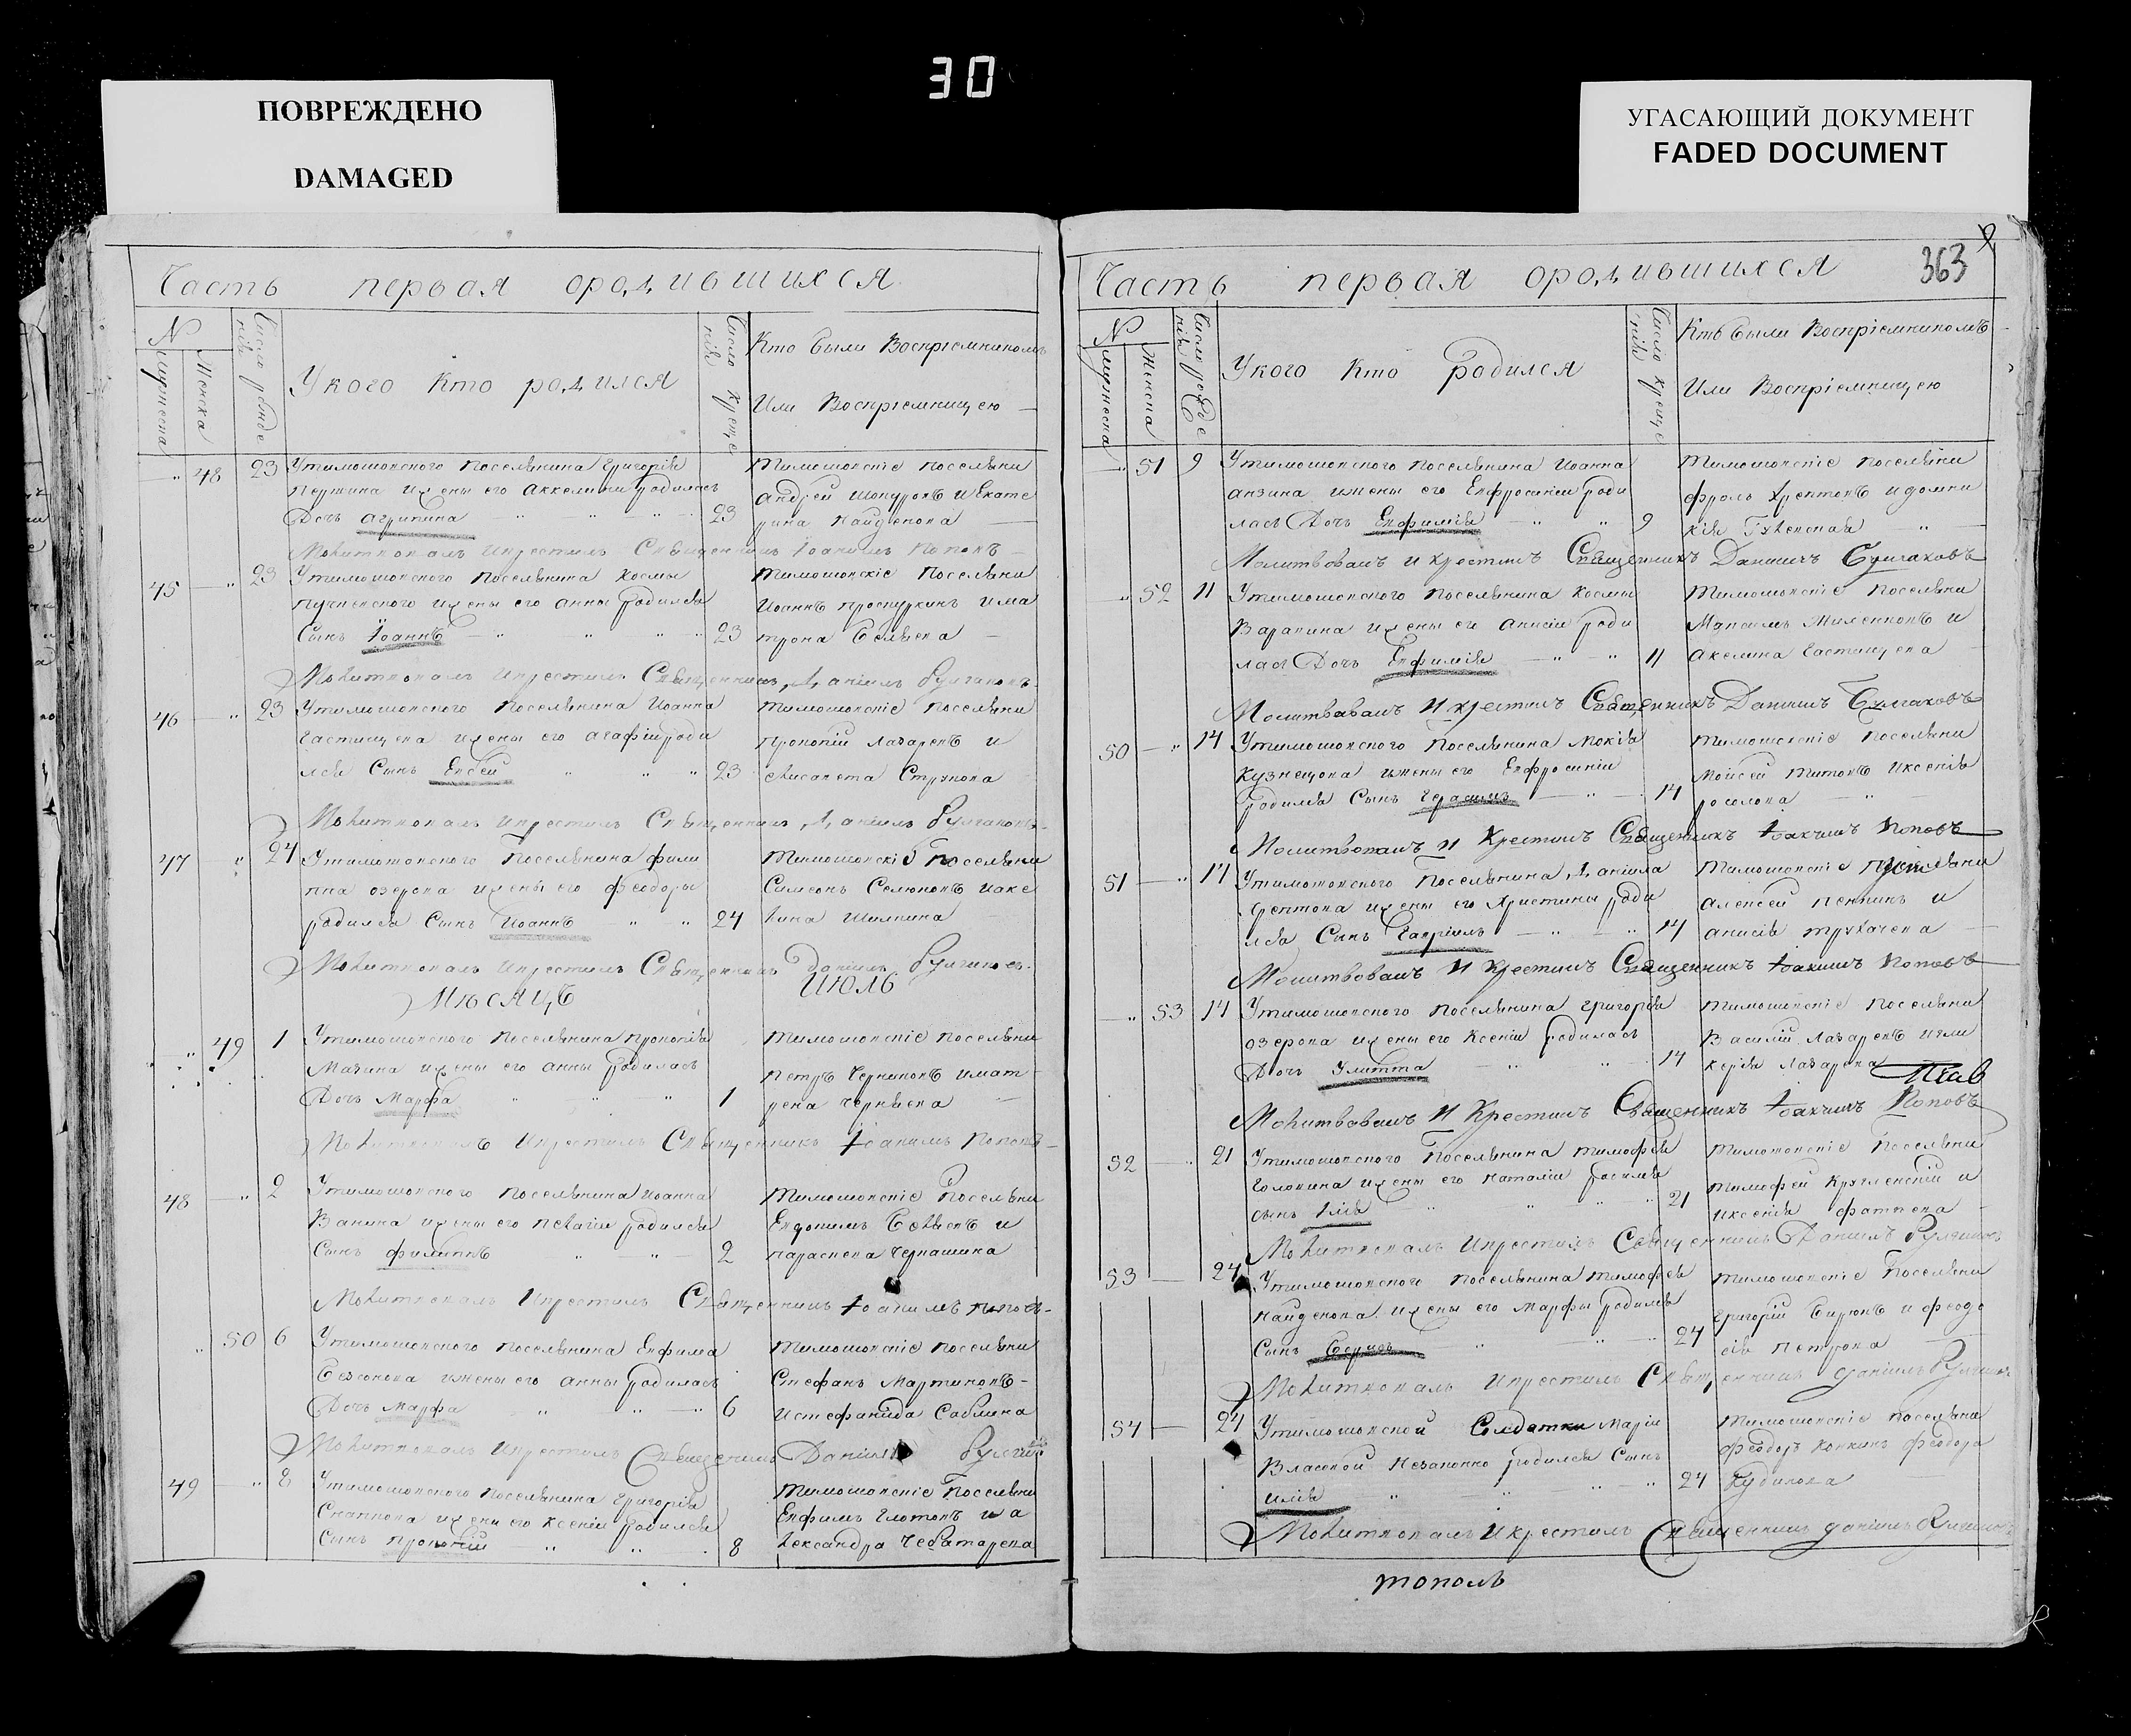 30
ПОВРЕЖДЕНО
DAMAGED
УГАСАЮЩИЙ ДОКУМЕНТ
FADED DOCUMENT
Часть первая ородившихся
N
Мужеска
Женска
Число рожде
нія
У кого Кто родился
Число креще
нія
Кто были Воспріемникомъ
Или Воспріемницею
48 23 Утимошовского поселянина Григорія
жены его Аккелины родилась
Дочь Агрипина 23
Тимошовскіе поселяни
Андрей и Екате
рина Найденова
Молитвовалъ и крестилъ Священникъ Іоакимъ Поповъ
45 23 Утимошовского поселянина Космы
жены его Анны родился
Сынъ Іоаннъ 23
Тимошовскіе Поселяни
Іоаннъ Проскуркинъ и Ма
трона Беляева
Молитвовалъ и крестилъ Священникъ Даніилъ Булгаковъ
46 23 Утимошовского Поселянина Иоанна
Гастищева жены его Агафіи роди
лся Сынъ Евсей 23
Тимошовскіе Поселяни
Прокопій Лазаревъ и
елисавета Струкова
Молитвовалъ и крестилъ Священникъ Даніилъ Булгаковъ
47 24 Утимошовского Поселянина Фили
ппа Озерова жены его Феодоры
родился Сынъ Иоаннъ 24
Тимошовскіе Поселяни
Симеонъ Селюковъ и аке
лина Шилкина
Молитвовалъ и крестилъ Священникъ Даніилъ Булгаковъ
Мюсяцъ Июль
49 1 Утимошовского Поселянина Прокопія
Мазина жены его Анны родилась
Дочь Марфа 1
Тимошовскіе поселяни
Петръ Черниковъ и мат
рена Черняева
Молитвовалъ и крестилъ Священникъ Іоакимъ Поповъ
48 2 Утимошовского поселянина Иоанна
Ванина жены его Пелагіи родился
Сынъ Филиппъ 2
Тимошовскіе Поселяни
Евдокимъ Беляевъ и
Параскева Чернашина
Молитвовалъ и крестилъ Священникъ Іоакимъ Поповъ
50 6 Утимошовского поселянина Евфима
Безсонова жены его Анны родилась
Дочь Марфа 6
Тимошовскіе поселяни
Стефанъ Мартиновъ
и Стефанида Саблина
Молитвовалъ и крестилъ Священникъ Даніилъ Булгаковъ
49 8 Утимошовского поселянина Григорія
жены его Ксеніи родился
Сынъ Прокопій 8
Тимошовскіе Поселяни
Евфимъ Глотовъ и а
лександра Чеботарева
Часть первая ородившихся
363
N
Мужеска
Женска
Число рожде
нія
У кого Кто родился
Число креще
нія
Кто были Воспріемникомъ
Или Воспріемницею
51 9 Утимошовского поселянина Иоанна
Анзина жены его Евфросиніи роди
лась Дочь Евфимія 9
Тимошовскіе поселяни
Фролъ Хрептовъ и Домни
кія
Молитвовалъ и крестилъ Священникъ Даниилъ Булгаковъ
52 11 Утимошовского поселянина Космы
Варакина жены его Анисіи роди
лась Дочь Евфимія 11
Тимошовскіе Поселяни
Максимъ Миленковъ и
Акелина Гастищева
Молитвовалъ И крестилъ Священникъ Даниилъ Булгаковъ
50 14 Утимошовского Поселянина Мокія
Кузнецова жены его Евфросиніи
родился Сынъ Герасимъ 14
Тимошовскіе Поселяни
Моисей Титовъ и Ксенія
Молитвовалъ И Крестилъ Священникъ Іоакимъ Поповъ
51 14 Утимошовского Поселянина Даніила
Хрептова жены его Христины роди
лся Сынъ Гавріилъ 14
Тимошовскіе поселяни
Алексей Пенкинъ и
Анисія Трухачева
Молитвовалъ И Крестилъ Священникъ Іоакимъ Поповъ
53 14 Утимошовского Поселянина Григорія
Озерова жены его Ксеніи родилась
Дочь Улитта 14
Тимошовскіе Поселяни
Василій Лазаревъ и гли
керія Лазарева
Молитвовалъ И Крестилъ Священникъ Іоакимъ Поповъ
52 21 Утимошовского Поселянина Тимофея
Головина жены его Наталіи родился
сынъ Илія 21
Тимошовскіе Поселяни
Тимофей и
и Ксенія Фатеева
Молитвовалъ и крестилъ Священникъ Даниилъ Булгаковъ
53 24 Утимошовского поселянина Тимофея
Найденова жены его Марфы родился
Сынъ 24
Тимошовскіе Поселяни
Григорій Бирюкъ и Феодо
сія Петрова
Молитвовалъ и крестилъ Священникъ Даніилъ Булгаковъ
54 24 Утимошовской Солдатки Маріи
Власовой Незаконно родился Сынъ
Илія 24
Тимошовскіе Поселяна
Феодоръ Конкинъ Феодора
Кудинова
Молитвовалъ И крестилъ Священникъ Даніилъ Булгаковъ